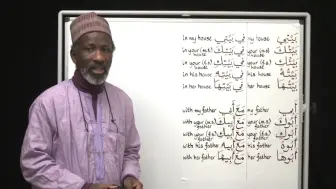 In my house فِي بَيْتِي my house بَيْتِي
In your (m.s) house فِي بَيْتِكَ your (m.s) house بَيْتُكَ
In your (f.s) house فِي بَيْتِكِ your (f.s) house بَيْتُكِ
In his house فِي بَيْتِهِ his house بَيْتُهُ
In her house فِي بَيْتِهَا her house بَيْتُهَا
with my father مَعَ أَبِي my father أَبِي
with your (m.s) father مَعَ أَبِيكَ your (m.s) father أَبُوكَ
with your (f.s) father مَعَ أَبِيكِ your (f.s) father أَبُوكِ
with his father مَعَ أَبِيهِ his father أَبُوهُ
with her father مَعَ أَبِيهَا her father أَبُوهَا